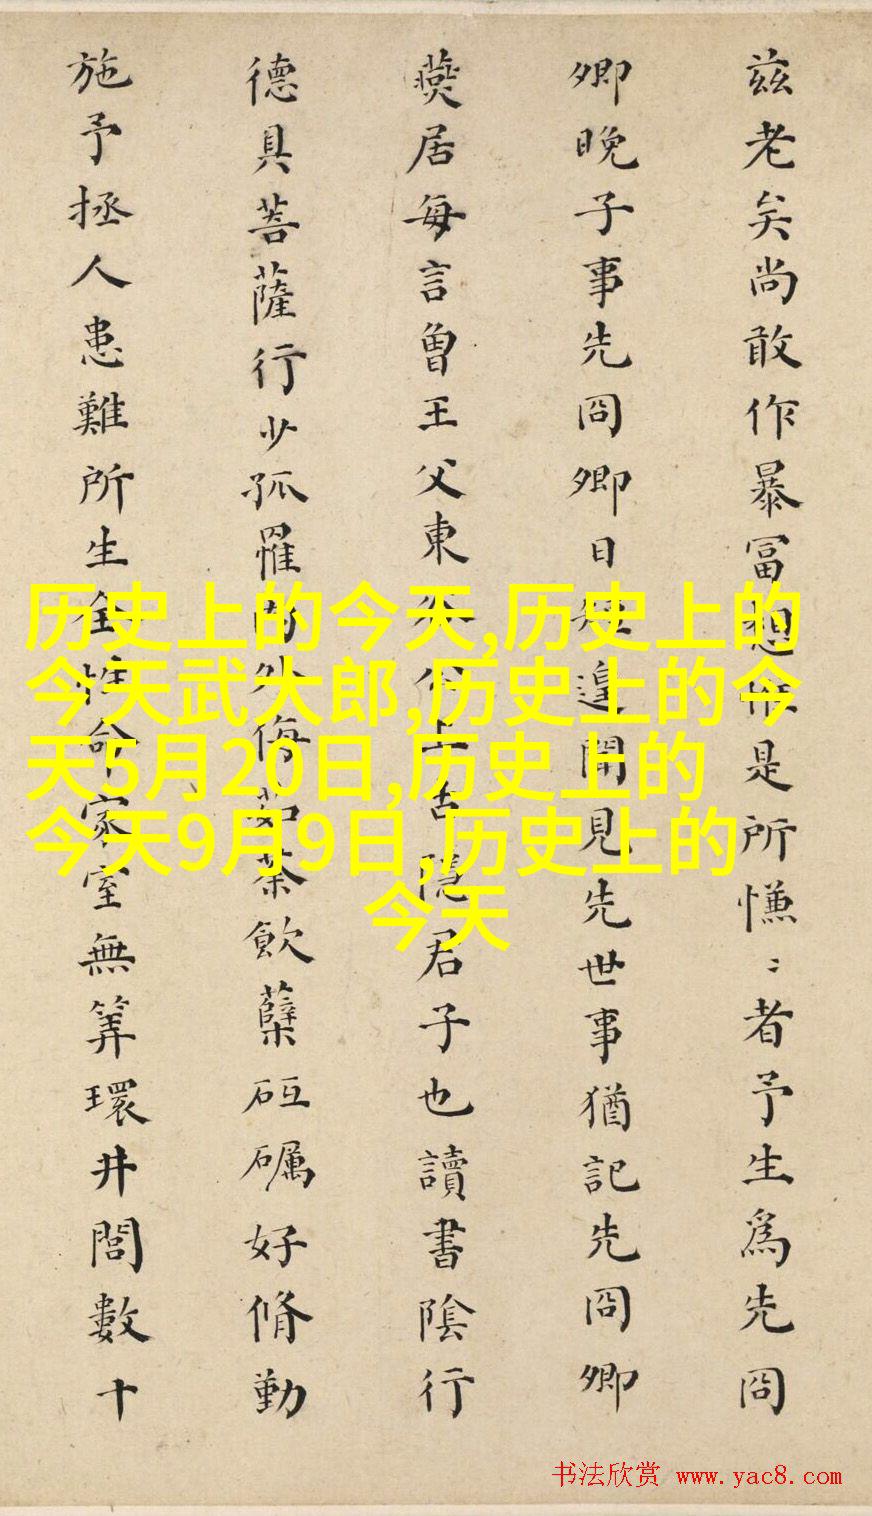 茲老矣尚敢作暴冨想惟是所慊〻者予生爲先冏
卿晚子事先冏卿日短遑聞見先世事猶記先冏卿
燕居每言曾王父東谷公上古隱君子也讀書陰行
德具菩薩行少孤罹外侮茹荼飲蘖砥礪好脩勤
施予拯人患難所生全性命家室無筭環井閭數十
历史上的今天,历史上的
今天武大郎,历史上的今
天5月20日,历史上的
今天9月9日,历史上的
今天
书法欣赏 www.yac8.com